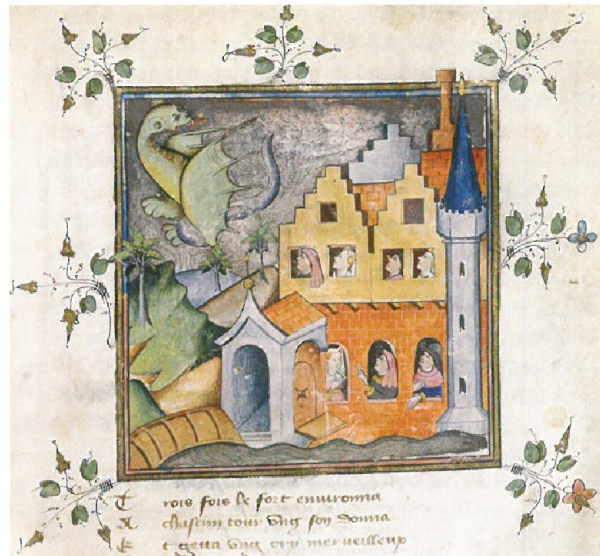 T rois fois le fort enuironna
A chascun tour vng son donna
E t getta vng cry merueilleux